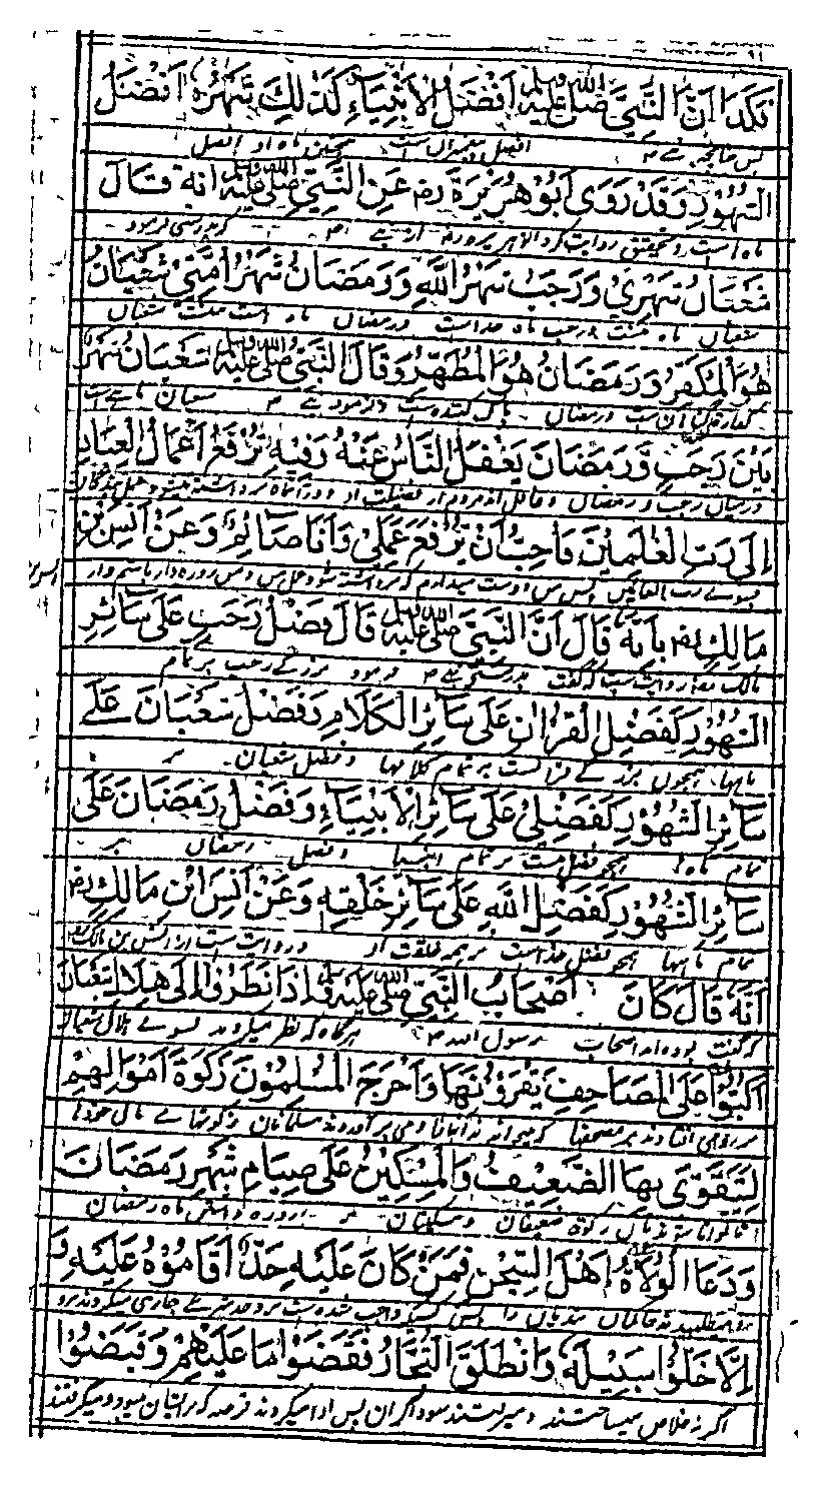 فكذا ان النبي صلى الله عليه وسلم افضل الانبياء كذلك شهره افضل
افضل پیغمبران است همچنین ماه او افضل
الشهور وقد روى ابو هريرة رض عن النبي صلى الله عليه وسلم انه قال
ماه است و بتحقیق روایت کرد
شعبان شهري ورجب شهر الله ورمضان شهر امتي شعبان
شعبان ماه منست و رجب ماه خداست و رمضان ماه امت منست شعبان
هو المكفر ورمضان هو المطهر وقال النبي صلى الله عليه وسلم شعبان شهر
ورمضان پاک کننده است و فرمود شعبان ماهی است
بين رجب ورمضان يغفل الناس عنه وفيه ترفع اعمال العباد
درمیان رجب و رمضان و غافل اند مردم از فضیلت او و
الى رب العلمين فاحب ان ترفع عملي وانا صائم وعن انس بن
بسوے رب العالمین پس من دوست میدارم که روزه دار باشم و از
مالك رض بانه قال ان النبي صلى الله عليه وسلم قال فضل رجب على سائر
مالک روایت است که گفت بدرستی فرمود رجب بر تمام
الشهور كفضل القران على سائر الكلام وفضل شعبان على
ماهها همچون قرانست بر تمام کلامها و فضل شعبان بر
سائر الشهور كفضلي على سائر الانبياء وفضل رمضان على
تمام همچو فضل منست بر تمام انبیا و فضل رمضان بر
سائر الشهور كفضل الله على سائر خلقه وعن انس ابن مالك رض
تمام ماهها همچو فضل خداست بر همه خلقت او و روایت ست از انس بن مالک رض
انه قال كان اصحاب النبي صلى الله عليه وسلم اذا نظروا الى هلال شعبان
که گفت بوده اند اصحاب رسول الله هرگاه که نظر میکردند بسوے هلال شعبان
اكبوا على المصاحف يقرؤنها واخرج المسلمون زكوة اموالهم
می افتادند بر مصحفها که میخواندند و می برآوردند مسلمانان
ليتقوى بها الضعيف والمسكين على صيام شهر رمضان
ضعیفان و مسکینان بر ماه رمضان
ودعا الولاة اهل السجن فمن كان عليه حد اقاموه عليه و
و میطلبیدند حاکمان را پس جاری میکردند برو
الا خلوا سبيله وانطلق التجار فقضوا ما عليهم وقبضوا
اگر نه خلاص میساختند و میرفتند سوداگران پس ادا میکردند قرضه که بر ایشان میبود و میگرفتند